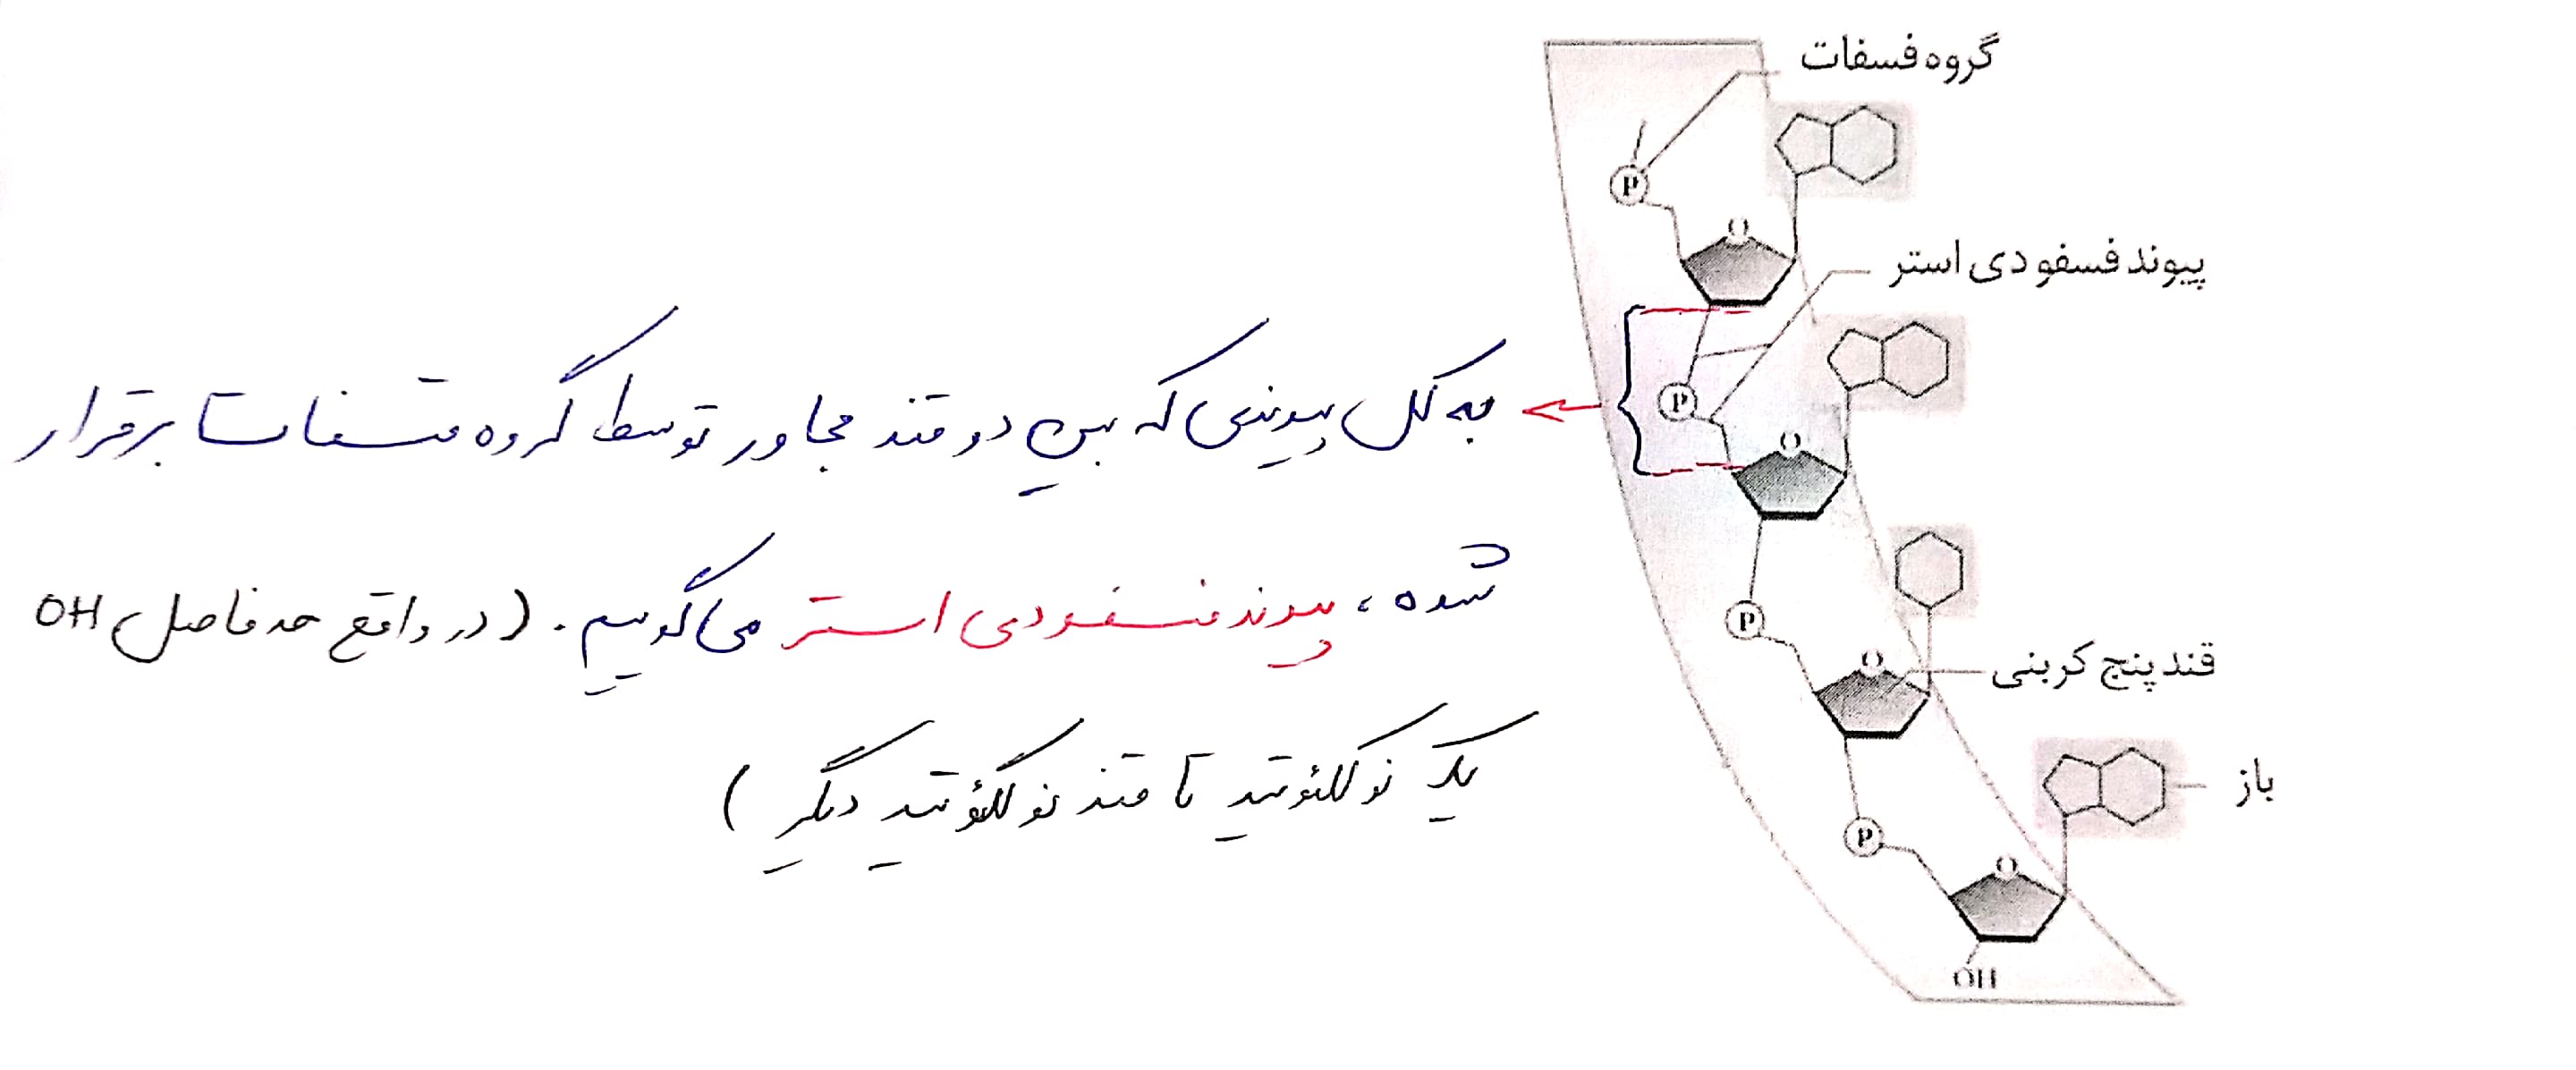 گروه فسفات
P
O
پیوند فسفو دی استر
به کل پیوندی که بین دو قند مجاور توسط گروه فسفات برقرار
P
O
شده، پیوند فسفودی استر می‌گوییم. (در واقع حد فاصل OH
P
O
قند پنج کربنی
یک نوکلئوتید تا قند نوکلئوتید دیگر)
باز
P
O
OH